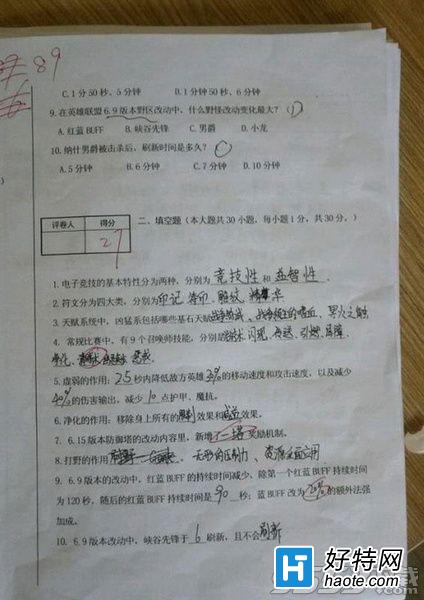 89
C.1分50秒、5分钟 D.1分钟50秒、6分钟
9.在英雄联盟6.9版本野区改动中,什么野怪改动变化最大?( )
A.红蓝BUFF B.峡谷先锋 C.男爵 D.小龙
10.纳什男爵被击杀后,刷新时间是多久?( )
A.5分钟 B.6分钟 C.7分钟 D.10分钟
评卷人 得分
27
二、填空题(本大题共30小题,每小题1分,共30分,)
1.电子竞技的基本特性分为两种,分别为竞技性和益智性.
2.符文分为四大类,分别为印记 符印、雕纹、精华
3.天赋系统中,凶猛系包括哪些基石天赋 战争领主的嗜血、
4.常规比赛中,有9个召唤师技能,分别是 闪现、传送、引燃、屏障、
净化、
5.虚弱的作用:2.5秒内降低敌方英雄 的移动速度和攻击速度,以及减少
40%的伤害输出,减少10点护甲、魔抗。
6.净化的作用:移除身上所有的 效果和 效果。
7.6.15版本防御塔的改动内容里,新增了一塔奖励机制。
8.打野的作用 无形的压力、资源
9.6.9版本的改动中,红蓝BUFF的持续时间减少,除第一个红蓝BUFF持续时间
为120秒,随后的红蓝BUFF持续时间是90秒;蓝BUFF改为 的额外法强
加成。
10.6.9版本改动中,峡谷先锋于6刷新,且不会刷新
H 好特网
haote.com